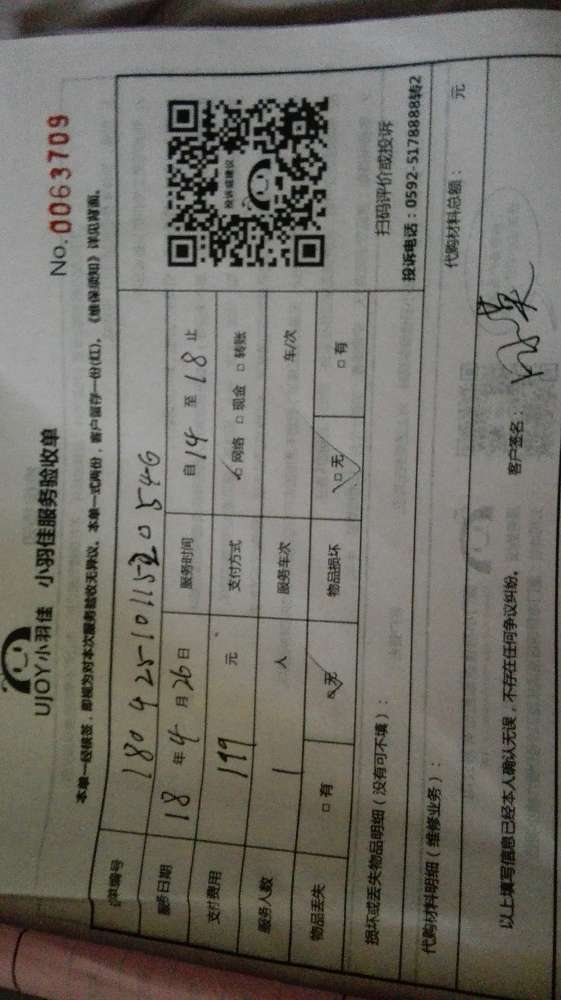 UJOY小羽佳 小羽佳服务验收单
No. 0063709
本单一经核签，即视为对本次服务验收无异议。本单一式两份，客户留存一份(红)。《维保须知》详见背面。
单编号 180425-1011520546
服务日期 18 年 4 月 26 日 服务时间 自 14 至 18 止
支付费用 199 元 支付方式 □ 网络 □ 现金 □ 转账
服务人数 1 人 服务车次 车/次
物品丢失 □ 有 □ 无 物品损坏 □ 无 □ 有
投诉或建议
扫码评价或投诉
投诉电话：0592-5178888转2
损坏或丢失物品明细（没有可不填）：
代购材料明细（维修业务）： 代购材料总额： 元
以上填写信息已经本人确认无误，不存在任何争议纠纷。 客户签名：